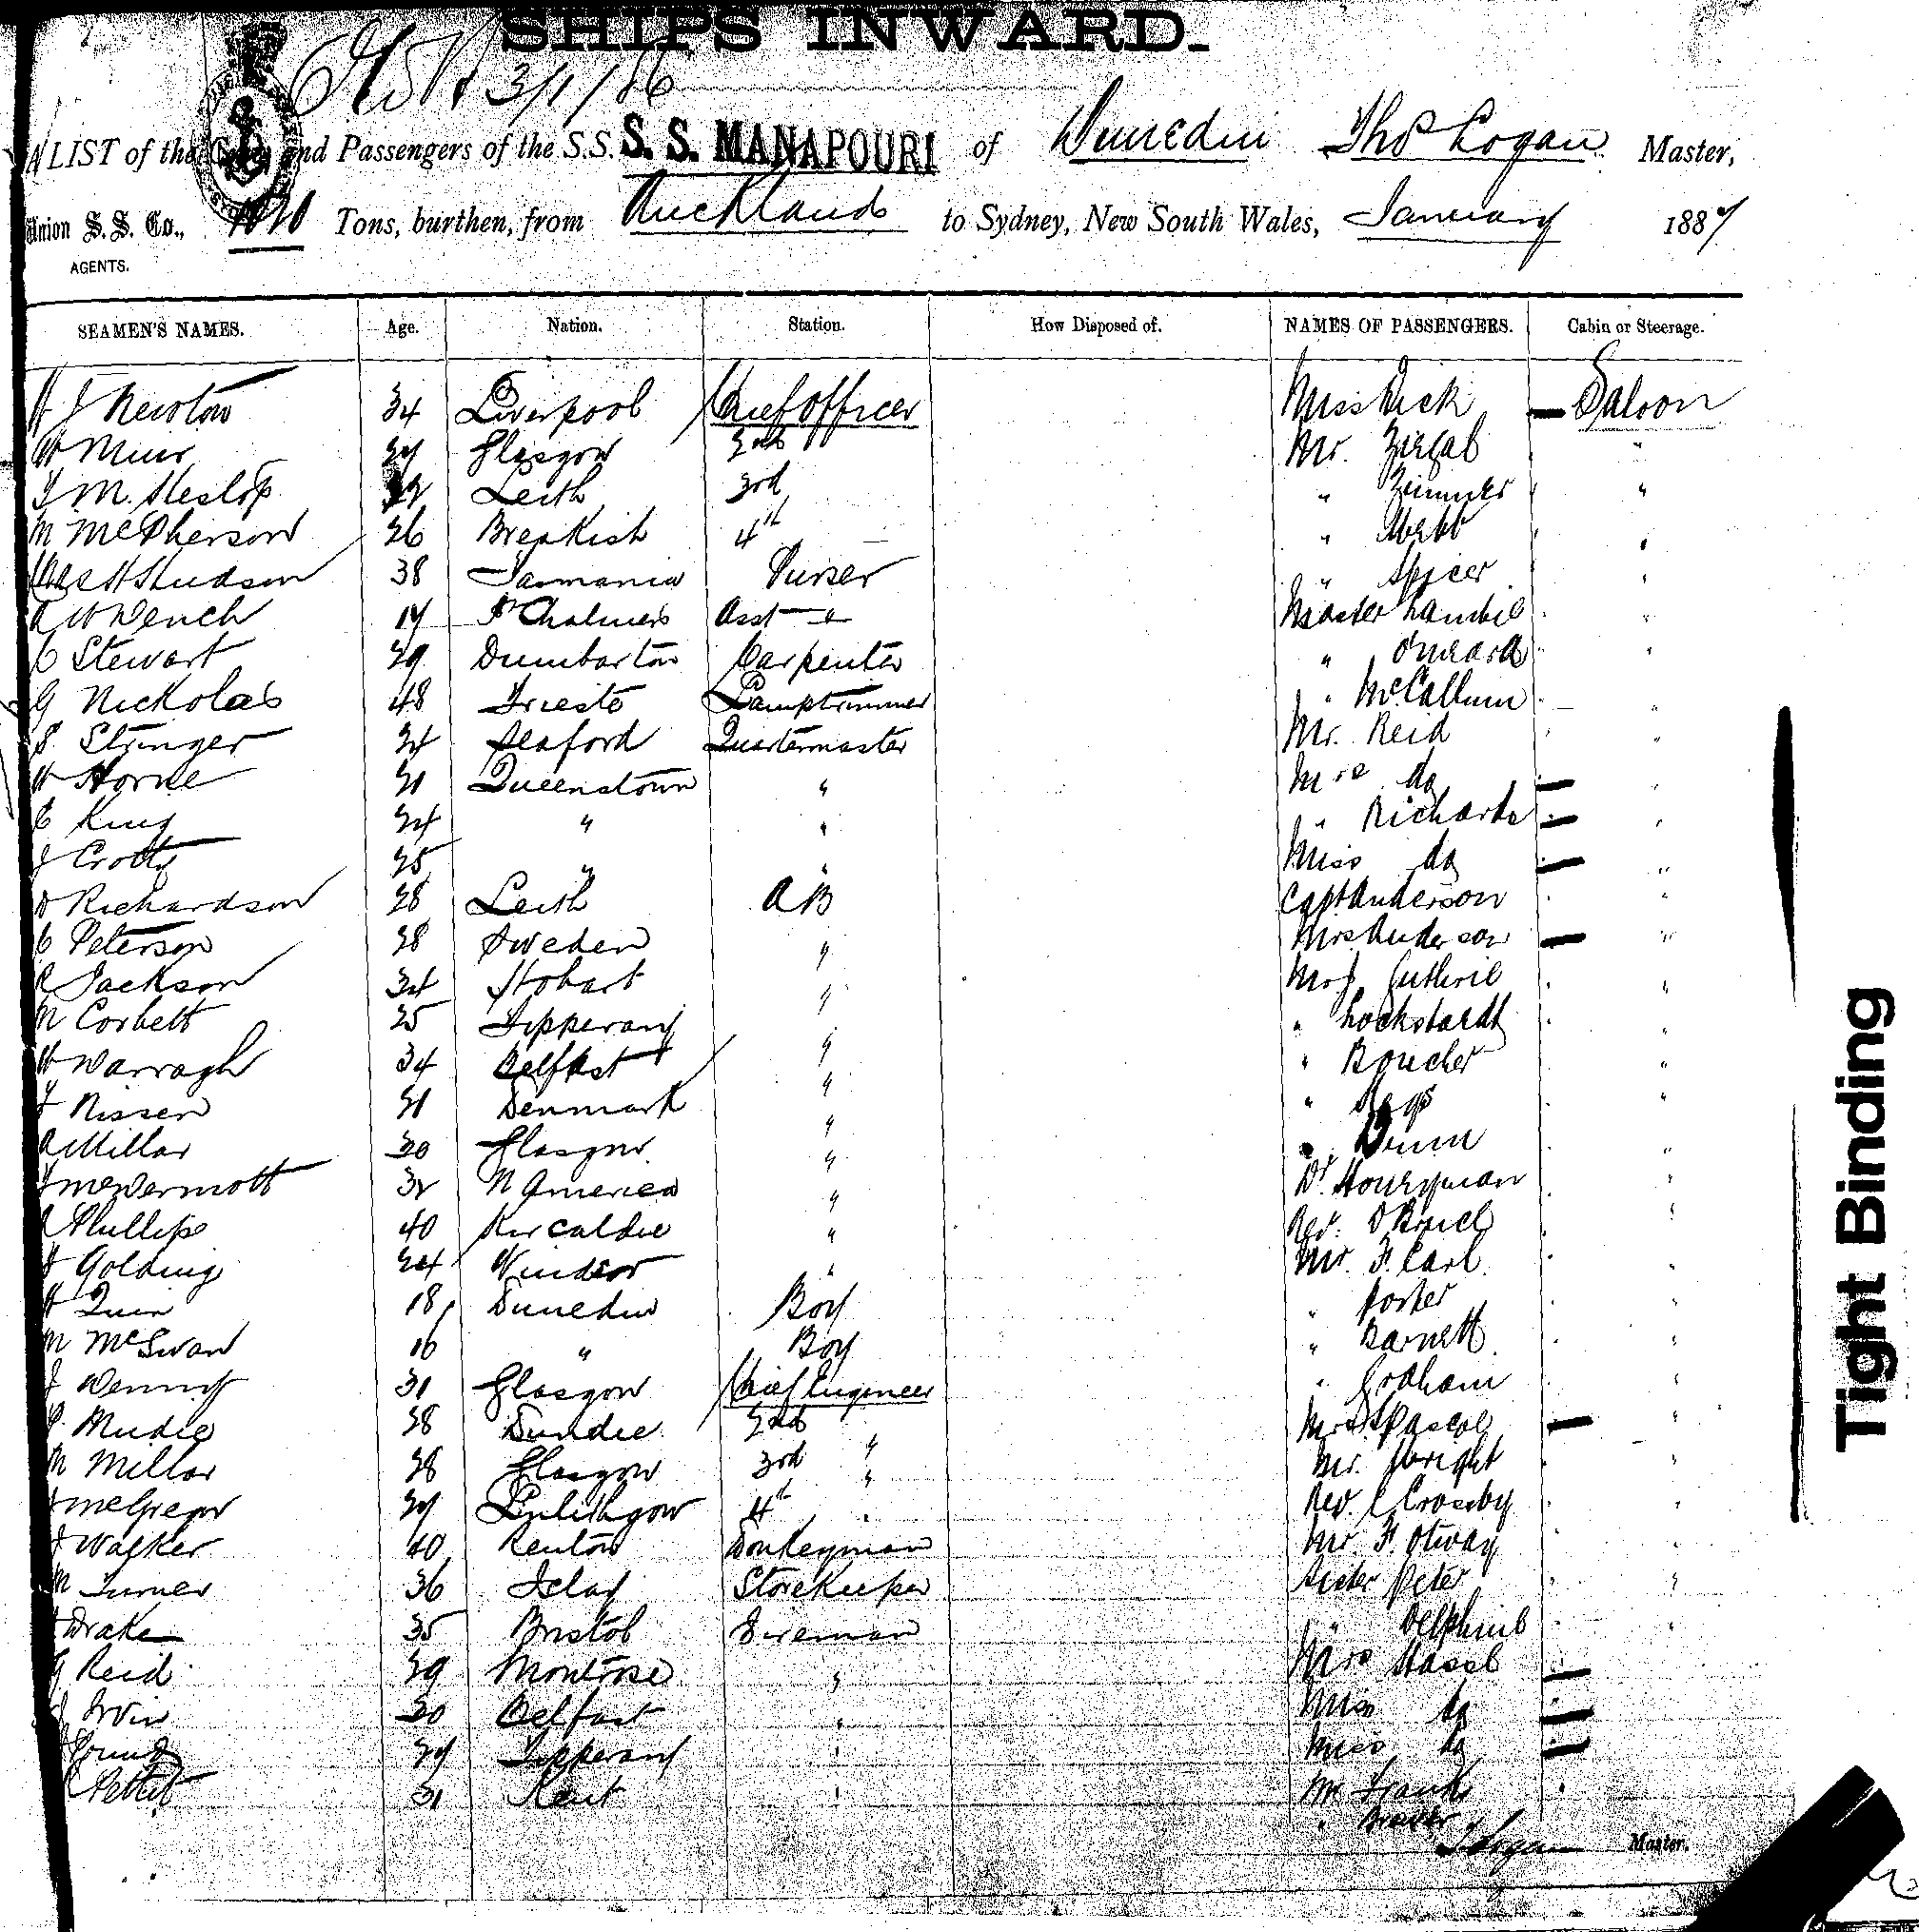 SHIPS INWARD.
3/1/86
A LIST of the Crew and Passengers of the S.S. S. S. MANAPOURI of Dunedin Thos Logan Master,
Union S. S. Co., 1020 Tons, burthen, from Auckland to Sydney, New South Wales, January 1887
AGENTS.
SEAMEN'S NAMES. Age. Nation. Station. How Disposed of. NAMES OF PASSENGERS. Cabin or Steerage.
J Newton 34 Liverpool Chief Officer Miss Dick Saloon
W Muir 27 Glasgow 2nd Mr. "
T M. Heslop Leith 3rd " Zimmer "
M McPherson 26 Breakish 4th " Webb "
Chas H Hudson 38 Tasmania Purser " Spicer "
A W Wench 17 Pt Chalmers Asst " Master Lambie "
C Stewart 29 Dumbarton Carpenter " Omeara "
G Nickolas 48 Trieste Lamptrimmer " McCallum "
S. Stringer 24 Seaford Quartermaster Mr. Reid "
W Horne 21 Queenstown " Mrs do "
C King 24 " " " Richards "
J Crotty 25 " " Miss do "
D Richardson 28 Leith AB Capt Anderson "
C Peterson 28 Sweden " Mrs Anderson "
R Jackson 34 Hobart " Mr J. Guthrie "
M Corbett 25 Tipperary " " Lockstaedt "
W Warragh 34 Belfast " " Boucher "
T Nissen 21 Denmark " " Hays "
A Millar 30 Glasgow " " Dunn "
J McDermott 32 N America " Dr. Honeyman "
R Phillips 40 Kircaldie " Rev. O Bruel "
H Golding 24 Windsor " Mr. F. Carl "
H Quin 18 Dunedin Boy " Foster "
M McSwan 16 " Boy " Barnett "
J Denny 31 Glasgow Chief Engineer " Graham "
P. Mudie 28 Dundee 2nd " Mrs Pascoe "
M Millar 28 Glasgow 3rd " Mr. Wright "
J McGregor 27 Linlithgow 4th " Rev. C Crossby "
J Walker 40 Renton Donkeyman Mr. F. Otway "
M Turner 36 Islay Storekeeper Sister Peter "
H Drake 35 Bristol Fireman " Delphine "
G Reid 29 Montrose " Mrs Hassl
J Irvin 30 Belfast " Miss do
Young 27 Tipperary " Miss do
Pettit 31 Kent " Mr Franks
"
T Logan Master.
Tight Binding